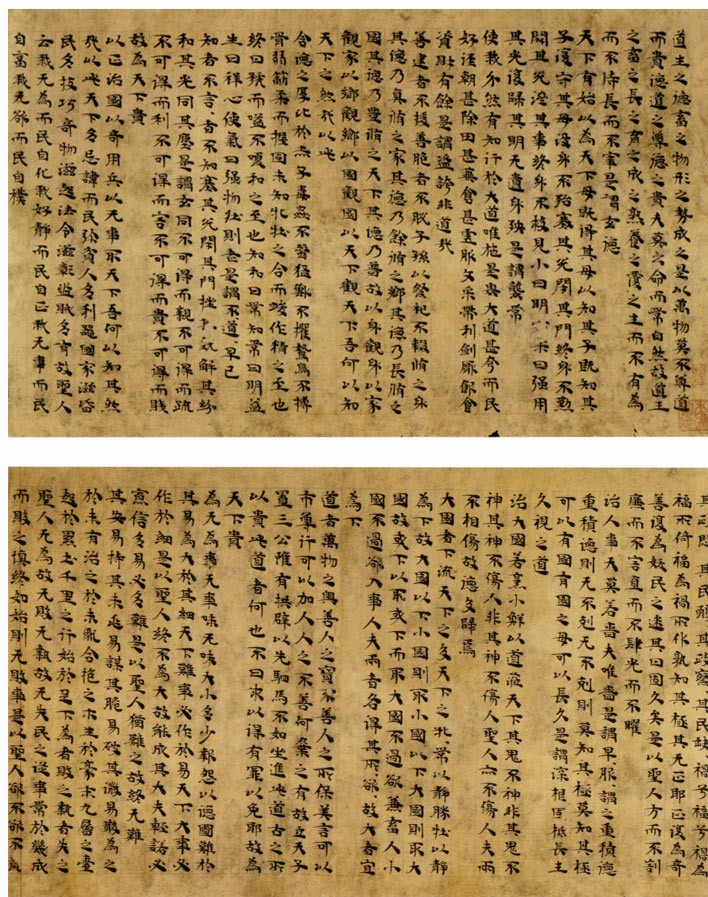 道生之德畜之物形之勢成之是以萬物莫不尊道
而貴德道之尊德之貴夫莫之命而常自然故道生
之畜之長之育之成之熟養之覆之生而不有為
而不恃長而不宰是謂玄德
天下有始以為天下母既得其母以知其子既知其
子復守其母没身不殆塞其兌閉其門終身不勤
開其兌濟其事終身不救見小曰明 柔曰强用
其光復歸其明无遺身殃是謂襲常
使我介然有知行於大道唯施是畏大道甚夷而民
好徑朝甚除田甚蕪倉甚虛服文采帶利劍厭飲食
資財有餘是謂盜誇非道哉
善建者不拔善抱者不脫子孫以祭祀不輟脩之身
其德乃真脩之家其德乃餘脩之鄉其德乃長脩之
國其德乃豐脩之天下其德乃普故以身觀身以家
觀家以鄉觀鄉以國觀國以天下觀天下吾何以知
天下之然哉以此
含德之厚比於赤子毒虫不螫猛獸不據攫鳥不搏
骨弱筋柔而握固未知牝牡之合而峻作精之至也
終日號而嗌不嗄和之至也知和曰常知常曰明益
生曰祥心使氣曰强物壯則老是謂不道早已
知者不言言者不知塞其兌閉其門挫其銳解其紛
和其光同其塵是謂玄同不可得而親不可得而疏
不可得而利不可得而害不可得而貴不可得而賤
故為天下貴
以正治國以奇用兵以无事取天下吾何以知其然
哉以此天下多忌諱而民弥貧人多利器國家滋昏
民多技巧奇物滋起法令滋彰盜賊多有故聖人
云我无為而民自化我好静而民自正我无事而民
自富我无欲而民自樸
其民醇其政察其民缺
福所倚福為禍所伏孰知其極其无正耶正復為奇
善復為妖民之迷其日固久矣是以聖人方而不割
廉而不害直而不肆光而不曜
治人事天莫若嗇夫唯嗇是謂早服謂之重積德
重積德則无不剋无不剋則莫知其極莫知其極
可以有國有國之母可以長久是謂深根固柢長生
久視之道
治大國若烹小鮮以道莅天下其鬼不神非其鬼不
神其神不傷人非其神不傷人聖人亦不傷人夫兩
不相傷故德交歸焉
大國者下流天下之交天下之牝常以静勝牡以静
為下故大國以下小國則取小國以下大國則取大
國故或下以取或下而取大國不過欲兼畜人小
國不過欲入事人夫兩者各得其所欲故大者宜
為下
道者萬物之奧善人之寶不善人之所保美言可以
市尊行可以加人人之不善何棄之有故立天子
置三公雖有拱璧以先駟馬不如坐進此道古之所
以貴此道者何也不曰求以得有罪以免耶故為
天下貴
為无為事无事味无味大小多少報怨以德圖難於
其易為大於其細天下難事必作於易天下大事必
作於細是以聖人終不為大故能成其大夫輕諾必
寡信多易必多難是以聖人猶難之故終无難
其安易持其未兆易謀其脆易破其微易散為之
於未有治之於未亂合抱之木生於豪末九層之臺
起於累土千里之行始於足下為者敗之執者失之
聖人无為故无敗无執故无失民之從事常於幾成
而敗之慎終如始則无敗事是以聖人欲不欲不